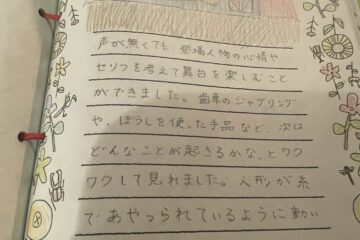 声が無くても、登場人物の心情や
セリフを考えて舞台を楽しむこと
ができました。歯車のジャグリング
や、ぼうしを使った手品など、次は
どんなことが起きるかな、とワク
ワクして見れました。人形が糸
であやつられているように動い